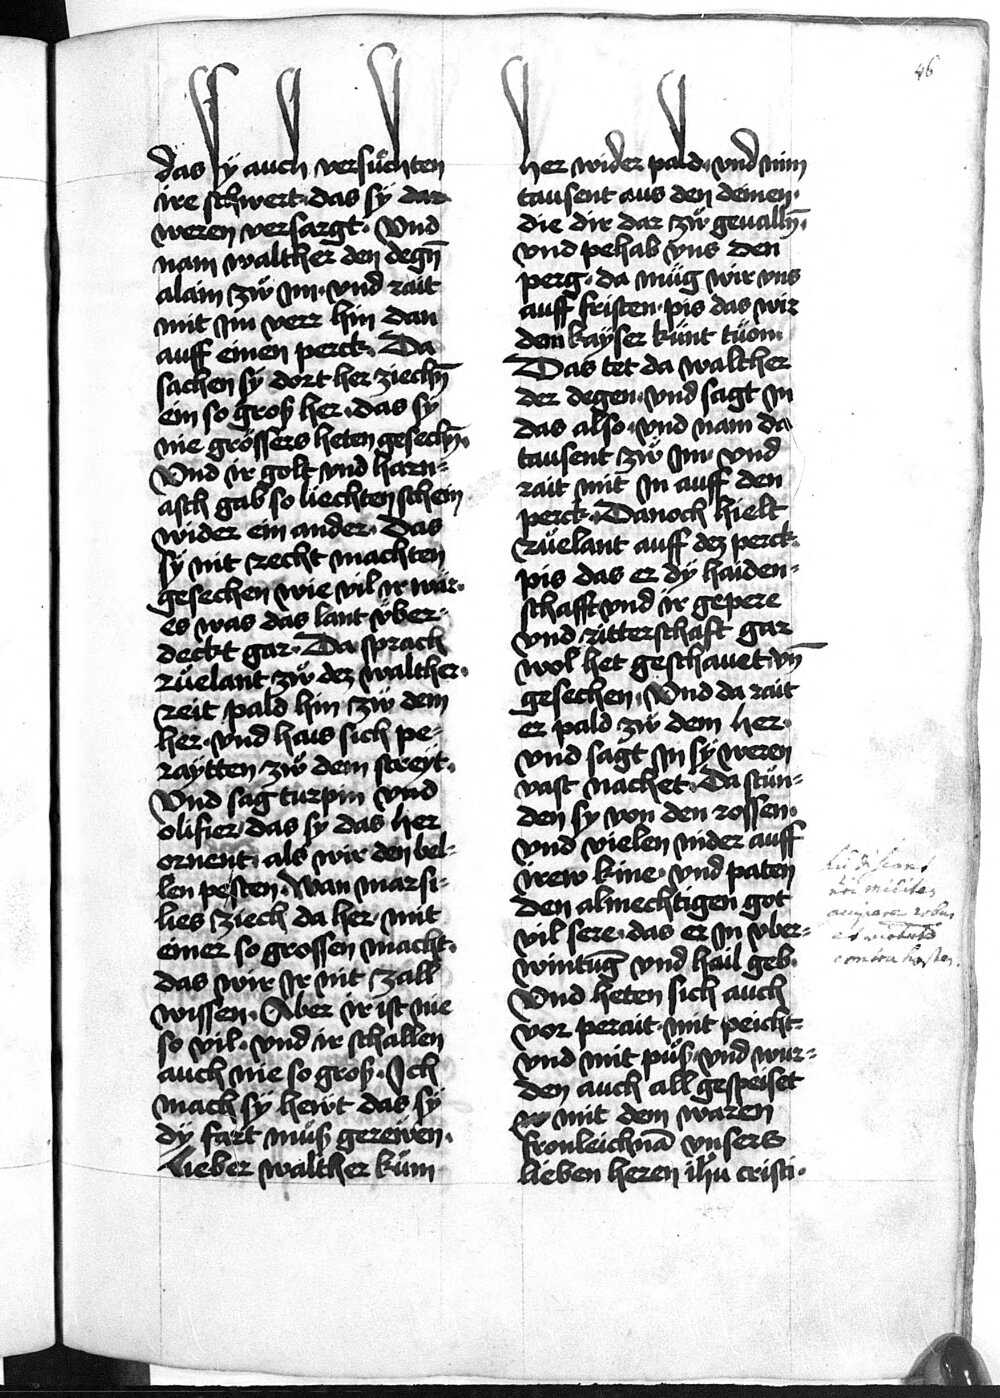 46
das sy auch versuͤchten
ire schwert · das sy dar
weren versargt · Vnd
nam walther den degn̄
alain zw̋ im · vnd rait
mit im verr hin dan
auff einen perck · Da
sachen sy dort her ziechn̄
ein so groß her · das sy
nie grössers heten gesechn̄ ·
Vnd ir golt vnd harn⸗
asch gab so liechten schein
wider ein ander · Das
sy nit recht machten
gesechen wie vil ir wär ·
es was das lant v̈ber⸗
deckt gar · Da sprach
rüelant zw̋ dez walther ·
reit pald hin zw̋ dem
her · vnd hais sich pe⸗
raÿtten zw̋ dem streÿt ·
Vnd sag turpin vnd
olifier das sy das her
ornent · als wir den bel⸗
len pesten · Wan marsi⸗
lies ziech da her · mit
einer so grossen macht ·
das wir ir nit zall
wissen · Aber ir ist nie
so vil · vnd ir schallen
auch nie so groß · Ich
mach sy hewt das sy
dÿ fart müß gerewen ·
lieber walther küm
her wider pald · vnd nim
tausent aus den deinen ·
die dir dar zw̋ geualln̄ ·
vnd pehab v̈ns den
perg · da müg wir vns
auff fristen · pis das wir
dem kaÿser künt tüon ·
Das tet da walther
der degen · vnd sagt in
das also · vnd nam da
tausent zw̋ im · vnd
rait mit in auff den
perck · Danoch hielt
rüelant auff dez perck ·
pis das er dÿ haiden⸗
schafft vnd ir gepere
vnd ritterschaft gar
wol het geschauet vn̄
gesechen · Vnd da rait
er pald zw̋ dem her ·
vnd sagt in sy weren
vast nachet · Da stün⸗
den sy von den rossen ·
vnd vielen nider auff
irew knie · vnd paten
den almechtigen got
vil sere · das er in v̈ber⸗
wintūg vnd hail geb ·
Vnd heten sich auch
vor perait · mit peicht ⸗
vnd mit püß · vnd wur⸗
den auch all gespeiset
mit dem waren
fronleichnā vnsers
lieben heren ihū cristi ·
milites
contra hostem.